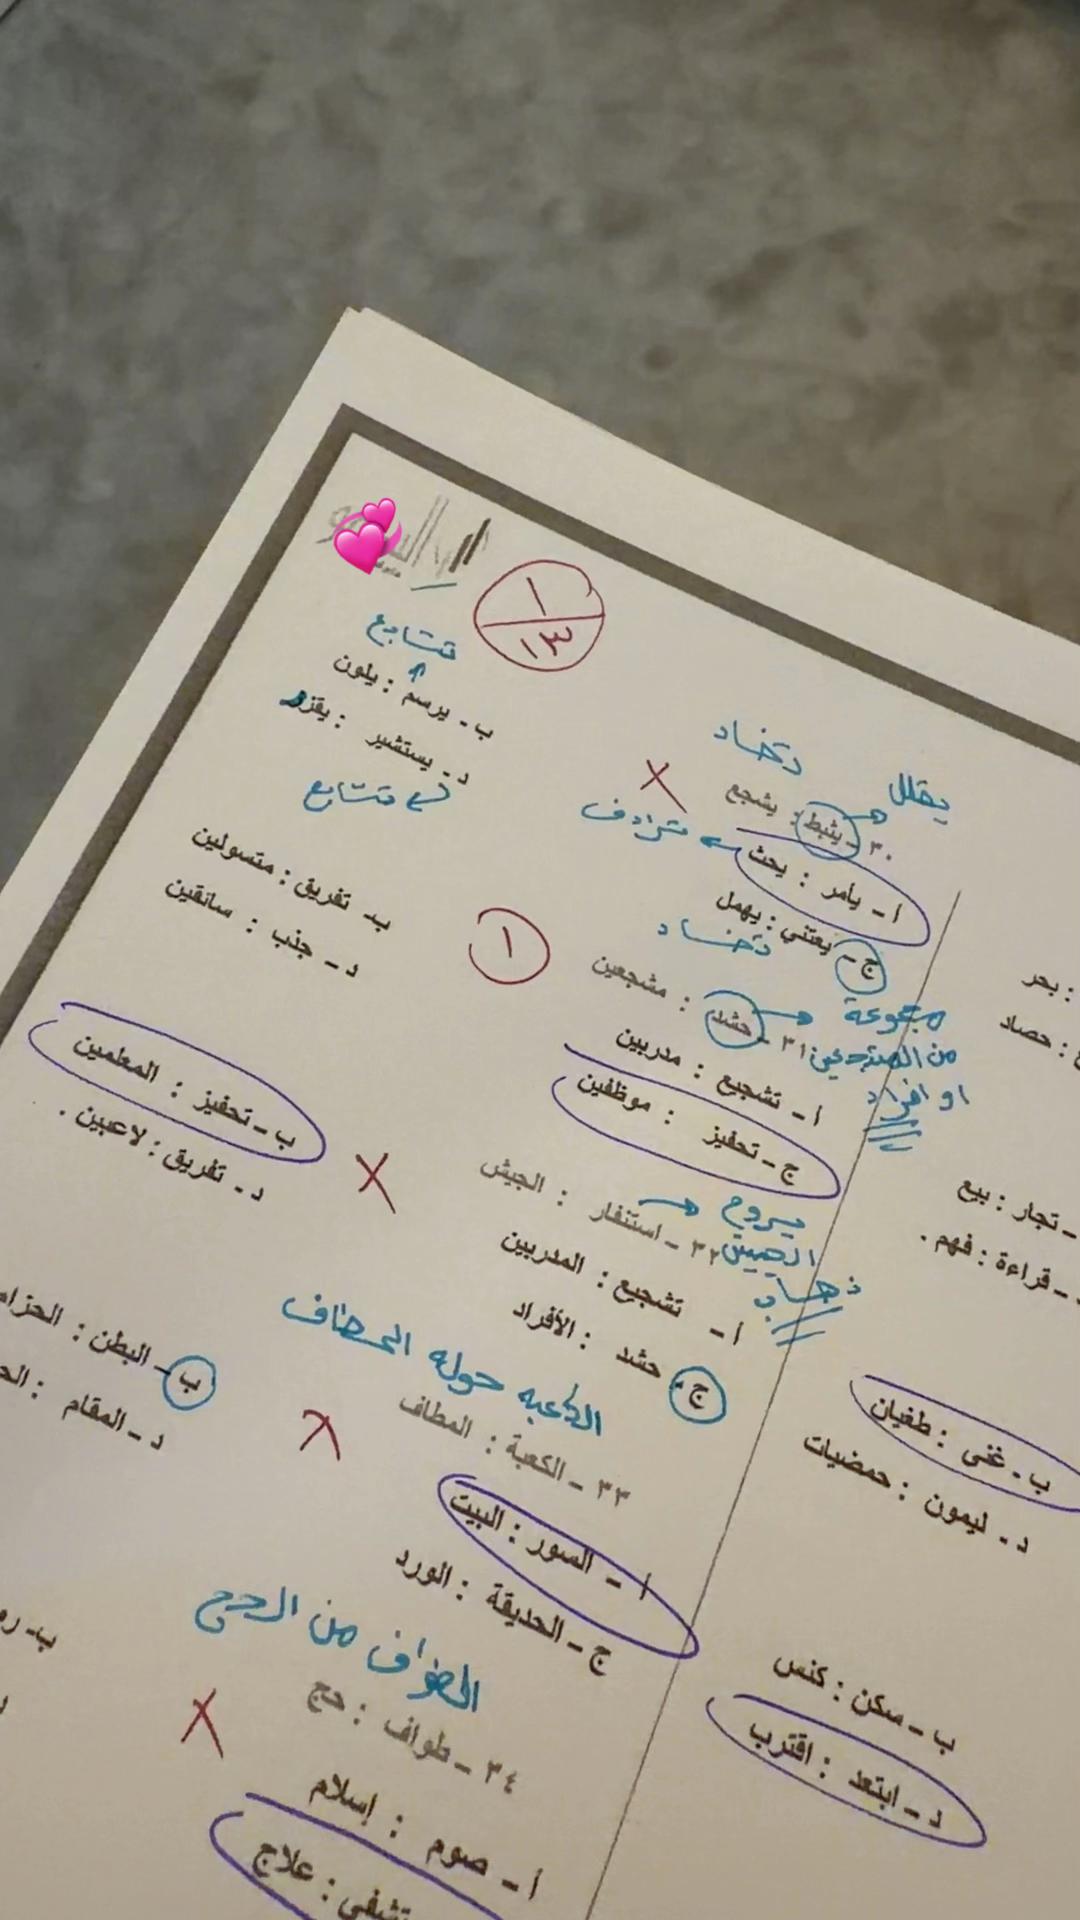 ١
١٣
يقلل
تضاد
٣٠ ـ يثبط : يشجع
مترادف
أ ـ يأمر : يحث
متتابع
ب ـ يرسم : يلون
ج ـ يعتني : يهمل
تضاد
د ـ يستشير : يقرر
متتابع
مجموعة
من
او افراد
٣١ ـ حشد : مشجعين
١
أ ـ تشجيع : مدربين
ب ـ تفريق : متسولين
ج ـ تحفيز : موظفين
د ـ جذب : سائقين
الجيش
٣٢ ـ استنفار : الجيش
أ ـ تشجيع : المدربين
ب ـ تحفيز : المعلمين
ج ـ حشد : الأفراد
د ـ تفريق : لاعبين .
الكعبه حوله المطاف
٣٣ ـ الكعبة : المطاف
أ ـ السور : البيت
ب ـ البطن : الحزام
ج ـ الحديقة : الورد
د ـ المقام :
الطواف من الحج
٣٤ ـ طواف : حج
أ ـ صوم : إسلام
: علاج
: بحر
: حصاد
ـ تجار : بيع
ـ قراءة : فهم .
ب ـ غنى : طغيان
د ـ ليمون : حمضيات
ب ـ سكن : كنس
د ـ ابتعد : اقترب